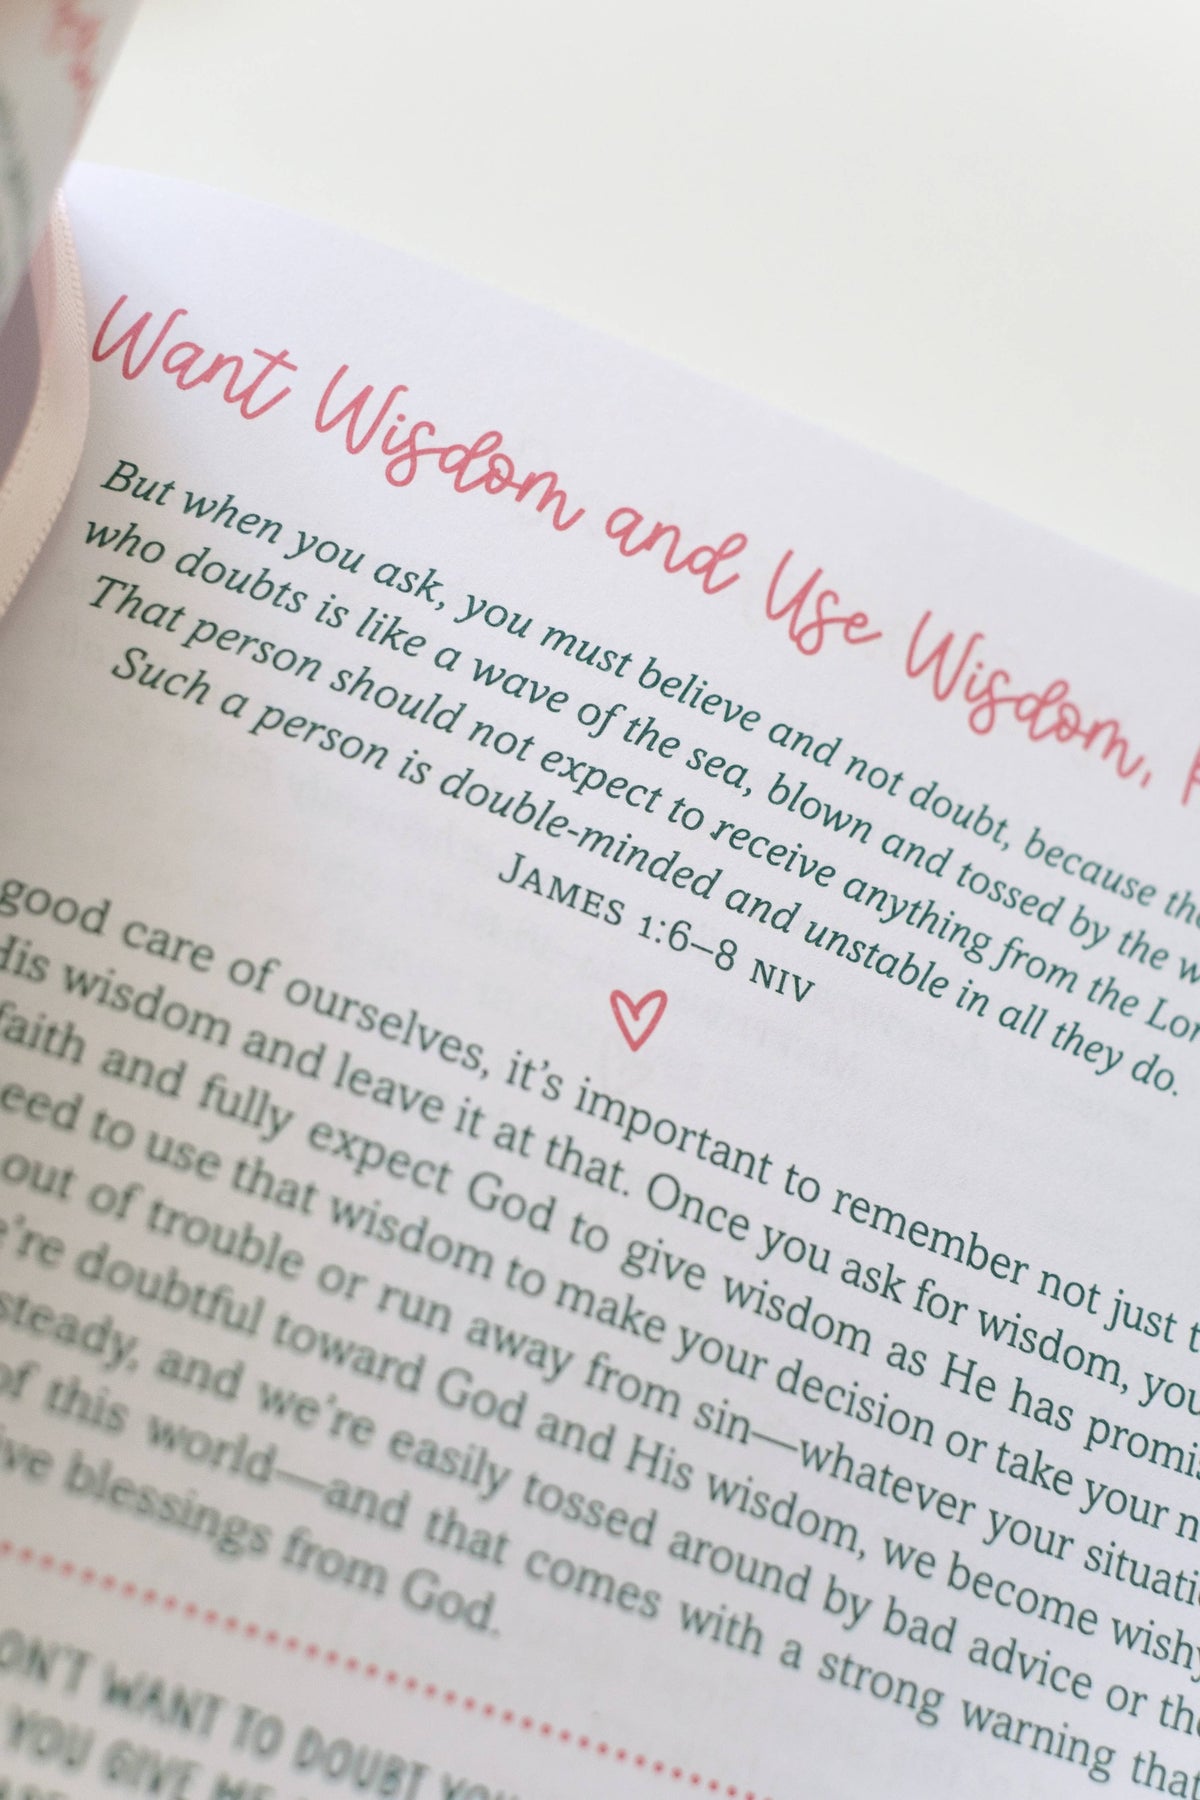 Want Wisdom and Use Wisdom,
But when you ask, you must believe and not doubt, because
who doubts is like a wave of the sea, blown and tossed by the
That person should not expect to receive anything from the
Such a person is double-minded and unstable in all they do.
JAMES 1:6–8 NIV
good care of ourselves, it's important to remember not just
His wisdom and leave it at that. Once you ask for wisdom, you
faith and fully expect God to give wisdom as He has
to use that wisdom to make your decision or take your
out of trouble or run away from sin—whatever your
doubtful toward God and His wisdom, we become
steady, and we're easily tossed around by bad advice or
of this world—and that comes with a strong warning that
blessings from God.
WANT TO DOUBT
YOU GIVE ME